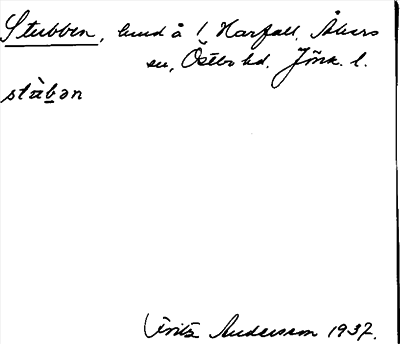 Stubben, lund å 1 Harfall, Åkers
sn, Östbo hd. Jönk. l.
stàbən
Fritz Andersson 1937.